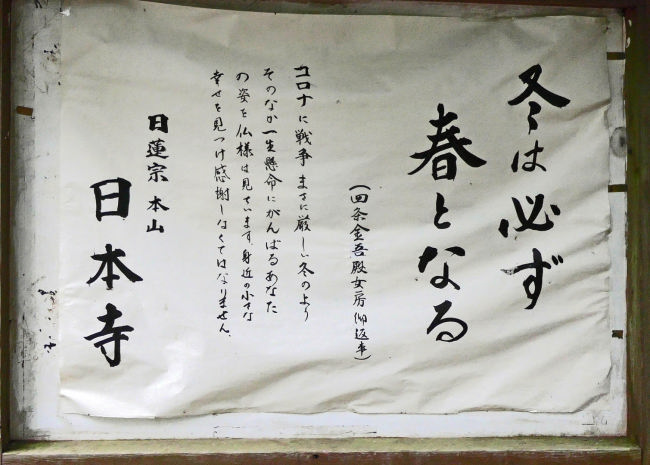 冬は必ず
春となる
(四条金吾殿女房御返事)
コロナに戦争まさに厳しい冬のよう
そのなか一生懸命にがんばるあなた
の姿を仏様は見ています身近の小さな
幸せを見つけ感謝しなくてはなりません。
日蓮宗 本山
日本寺